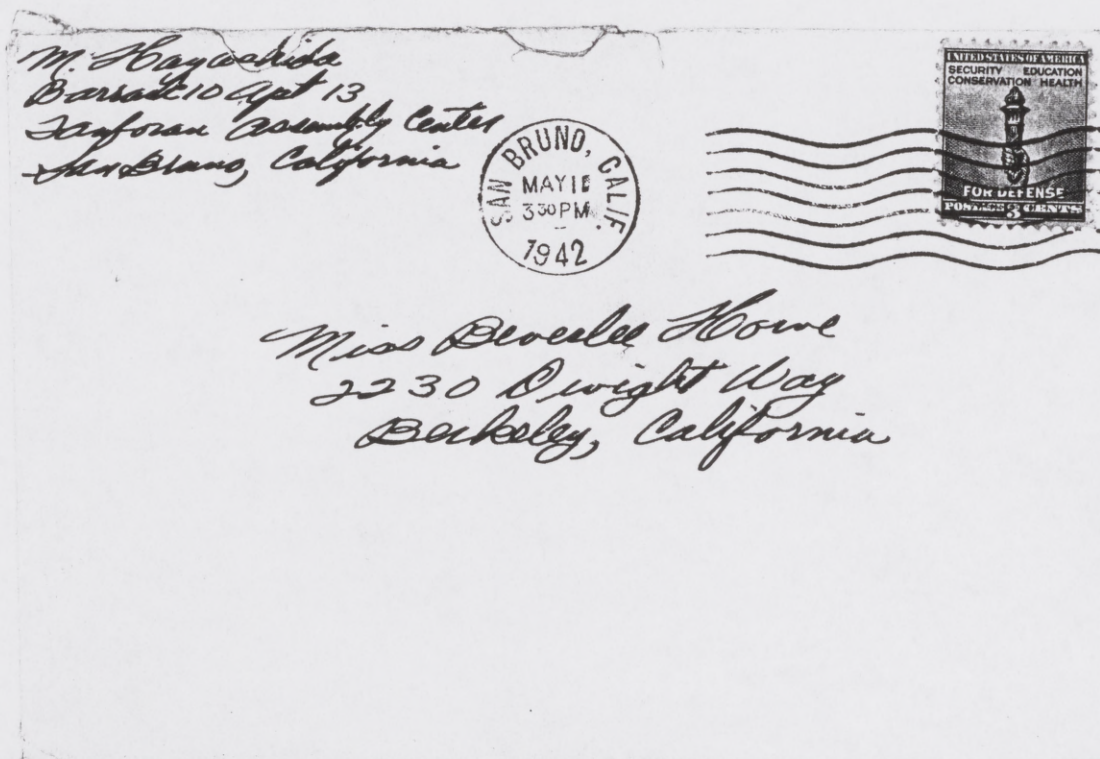 M. Hayashida
Barrack 10 Apt 13
Tanforan Assembly Center
San Bruno, California
SAN BRUNO, CALIF.
MAY
3 30 PM
1942
UNITED STATES OF AMERICA
SECURITY EDUCATION
CONSERVATION HEALTH
FOR DEFENSE
POSTAGE 3 CENTS
Miss Beverlee
2230 Dwight Way
Berkeley, California